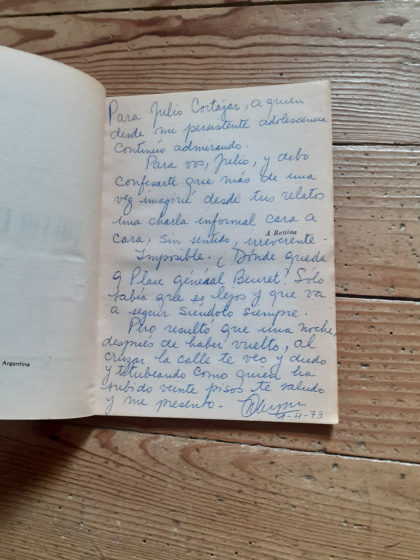 Para Julio Cortázar, a quien
desde mi persistente adolescencia
continúo admirando.
Para vos, Julio, y debo
confesarte que más de una
vez imaginé desde tus relatos
una charla informal cara a
A Bettina
cara, sin sentido, irreverente-
Imposible. ¿Dónde queda
9 Place général Beuret? Sólo
sabía que es lejos y que va
a seguir siéndolo siempre.
Pero resultó que una noche,
después de haber vuelto, al
cruzar la calle te veo y dudo
y titubeando como quien ha
subido veinte pisos te saludo
y me presento-
9-4-73
Argentina